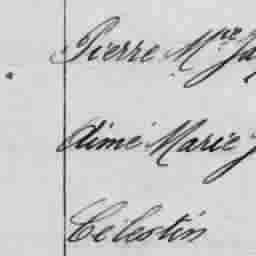 Pierre Mre Ja
Aimé Marie J
Célestin